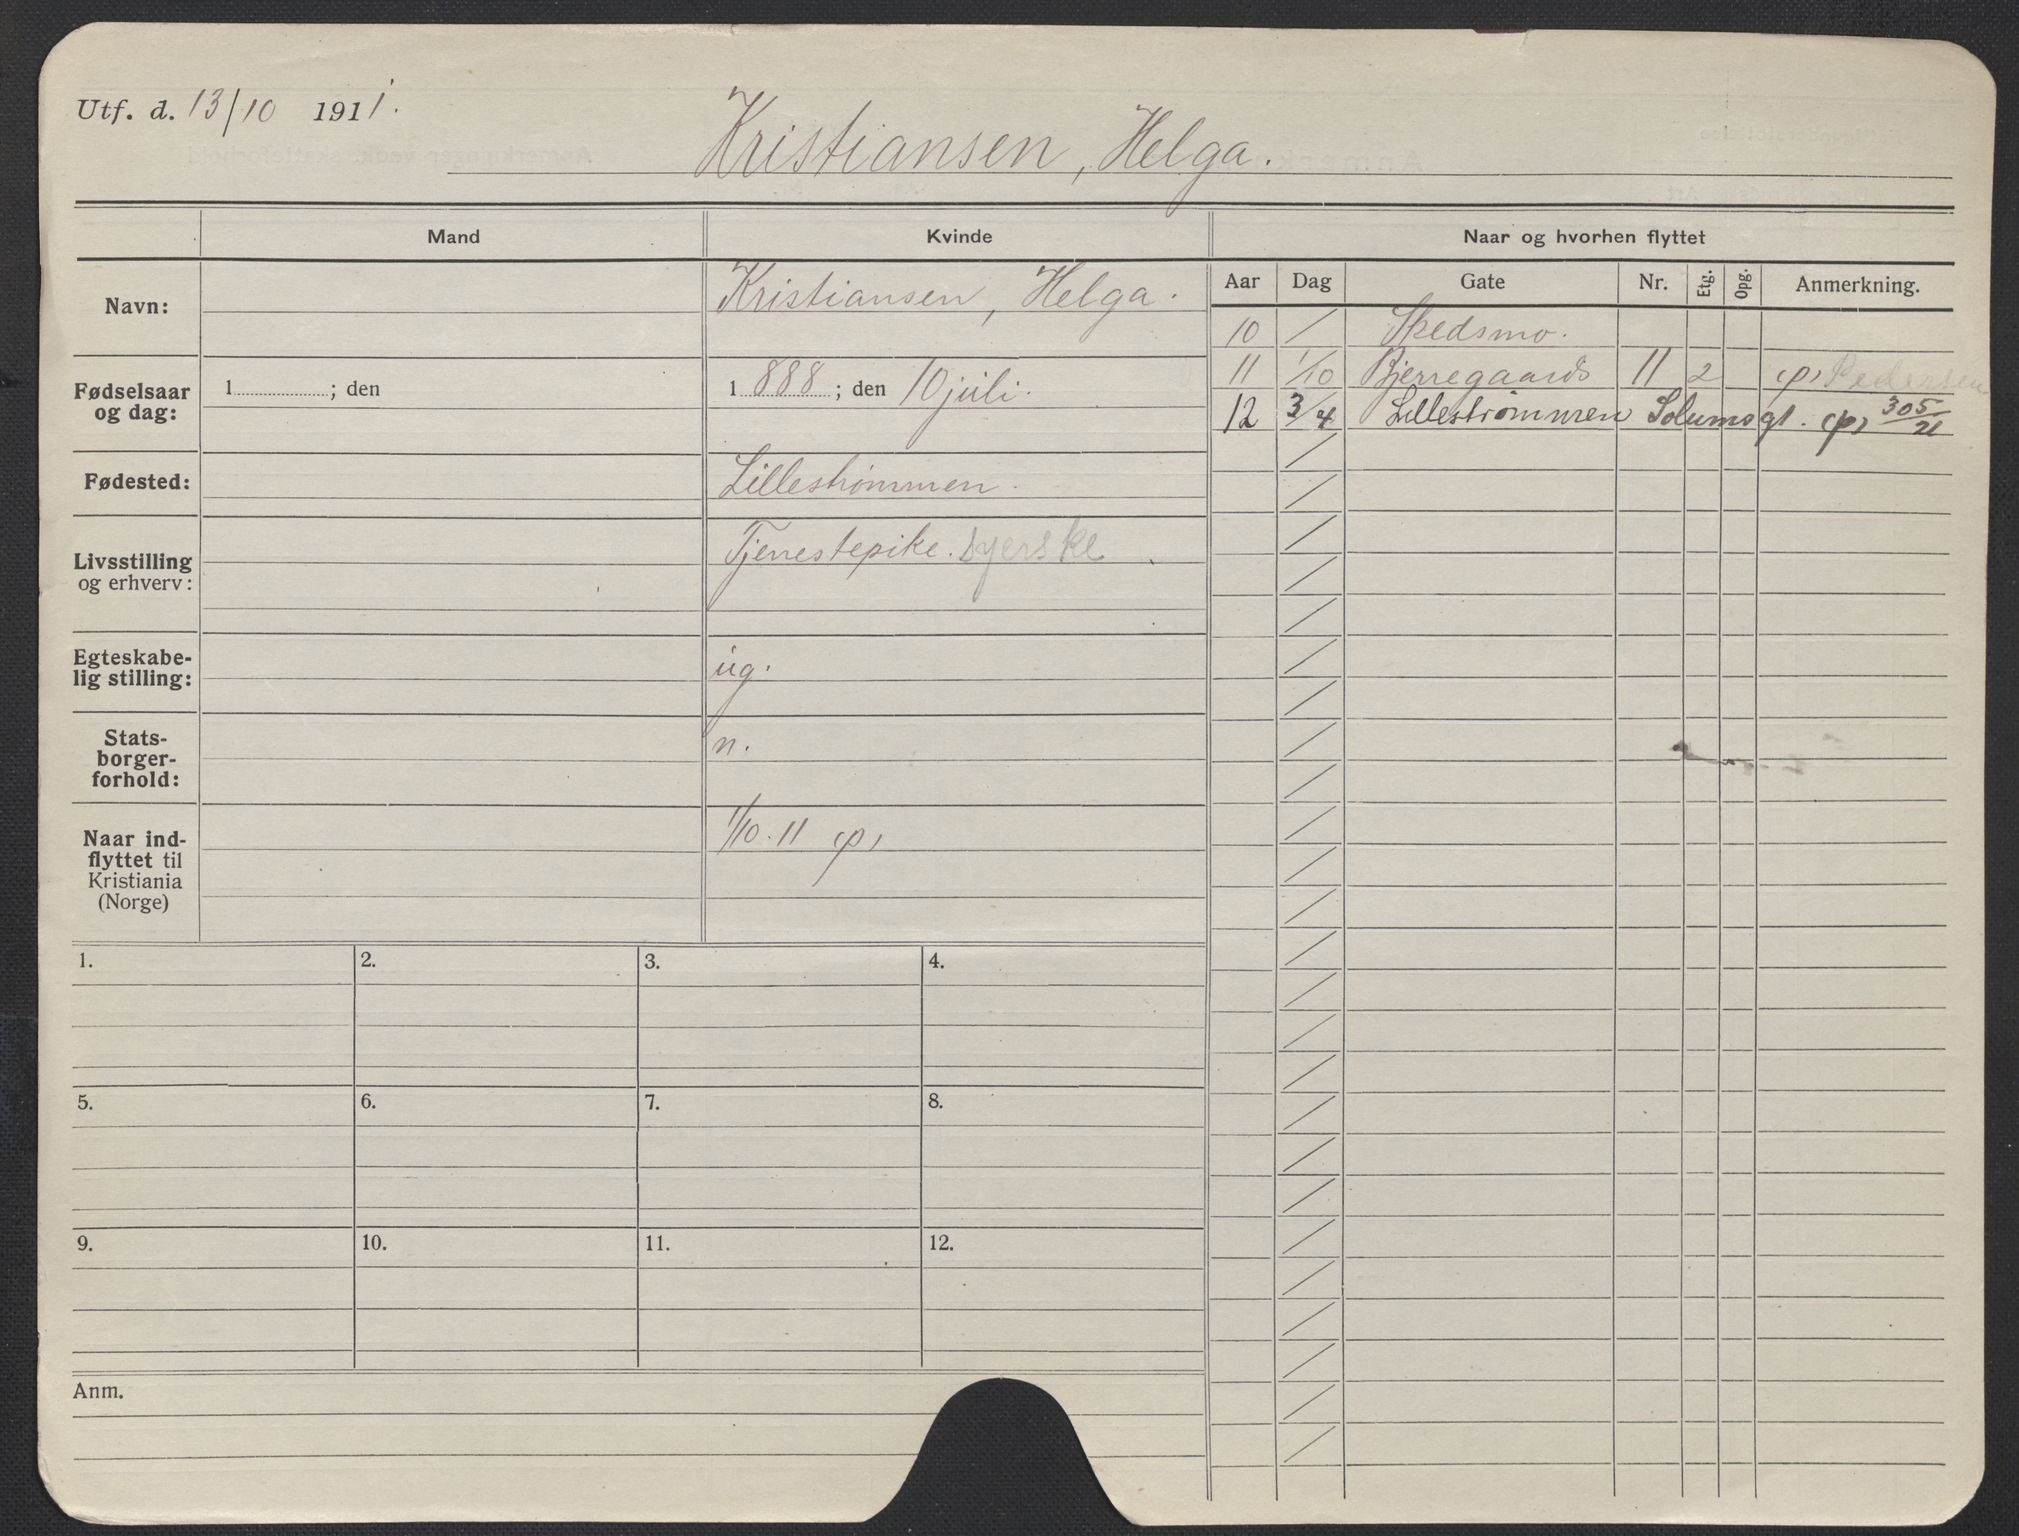 Utf. d. 13/10 1911.
Kristiansen, Helga.
Mand Kvinde Naar og hvorhen flyttet
Navn: Kristiansen, Helga.
Fødselsaar og dag: 1 ; den 1 888 ; den 10 juli.
Fødested: Lillestrømmen.
Livsstilling og erhverv: Tjenestepike. Syerske
Egteskabe-
lig stilling: ug.
Stats-
borger-
forhold: n.
Naar ind-
flyttet til
Kristiania
(Norge) 1/10. 11 (p)
Aar Dag Gate Nr. Etg. Opg. Anmerkning.
10 / Skedsmo.
11 1/10 Bjerregaards 11 2 (p) Pedersen
12 3/4 Lillestrømmen Solumsgt. (p) 305/21
1. 2. 3. 4.
5. 6. 7. 8.
9. 10. 11. 12.
Anm.